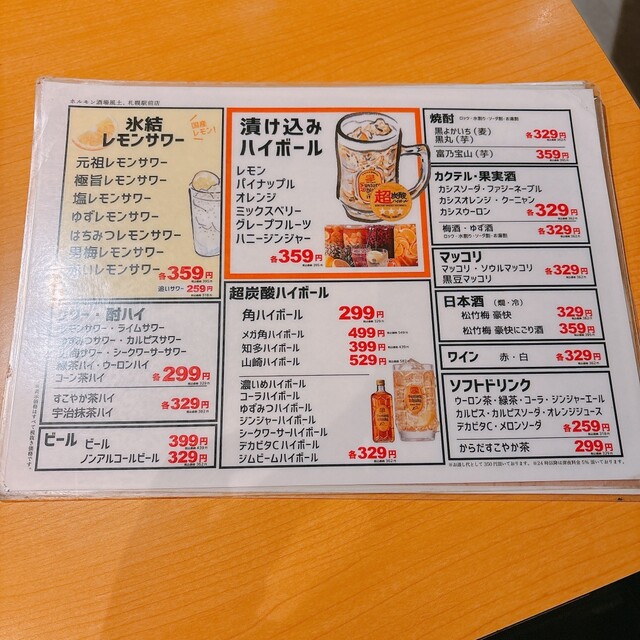 ホルモン酒場風土. 札幌駅前店
氷結
レモンサワー
国産
レモン!
元祖レモンサワー
極旨レモンサワー
塩レモンサワー
ゆずレモンサワー
はちみつレモンサワー
男梅レモンサワー
レモンサワー
各359円
追いサワー 259円
サワー・酎ハイ
レモンサワー・ライムサワー
ゆずみつサワー・カルピスサワー
サワー・シークワーサーサワー
緑茶ハイ・ウーロンハイ
コーン茶ハイ
各299円
すこやか茶ハイ
宇治抹茶ハイ
各329円
ビール
ビール 399円
ノンアルコールビール 329円
漬け込み
ハイボール
レモン
パイナップル
オレンジ
ミックスベリー
グレープフルーツ
ハニージンジャー
各359円
超炭酸
超炭酸ハイボール
角ハイボール 299円
メガ角ハイボール 499円
知多ハイボール 399円
山崎ハイボール 529円
濃いめハイボール
コーラハイボール
ゆずみつハイボール
ジンジャーハイボール
シークワーサーハイボール
デカビタCハイボール
ジムビームハイボール
各329円
焼酎 ロック・水割り・ソーダ割・お湯割
黒よかいち(麦)
黒丸(芋)
各329円
富乃宝山(芋) 359円
カクテル・果実酒
カシスソーダ・ファジーネーブル
カシスオレンジ・クーニャン
カシスウーロン
各329円
梅酒・ゆず酒
ロック・水割り・ソーダ割・お湯割
各329円
マッコリ
マッコリ・ソウルマッコリ
黒豆マッコリ
各329円
日本酒(燗・冷)
松竹梅 豪快 329円
松竹梅 豪快にごり酒 359円
ワイン 赤・白 各329円
ソフトドリンク
ウーロン茶・緑茶・コーラ・ジンジャーエール
カルピス・カルピスソーダ・オレンジジュース
デカビタC・メロンソーダ
各259円
からだすこやか茶 299円